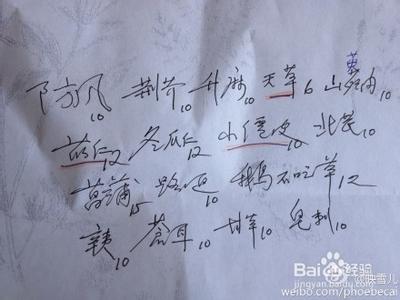 防风10 荆芥10 升麻10 天草6 山萸肉10
苡仁12 冬瓜仁12 小儇皮10 北芪10
菖蒲15 路路通10 鹅不吃草12
辛夷10 苍耳10 甘草10 皂刺10
Bai度经验
jingyan.baidu.com
@映雪儿
weibo.com/phoebecai